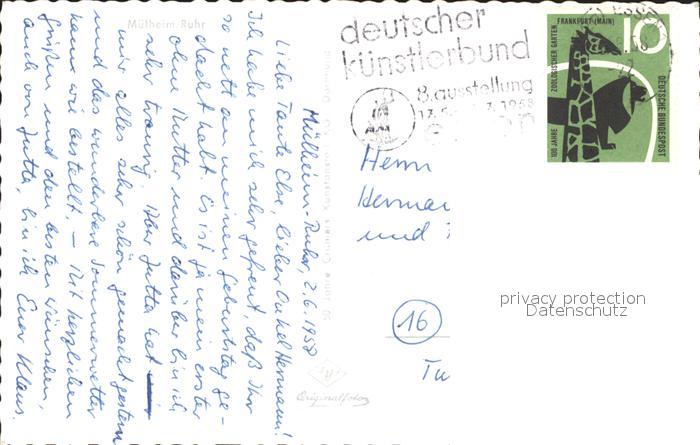 Mülheim Ruhr
Mülheim-Ruhr, 2.6.1958
Liebe Tante Else, lieber Onkel Hermann!
Ich habe mich sehr gefreut, daß Ihr
so nett an meinen Geburtstag ge-
dacht habt. Es ist ja mein erster
ohne Mutter und darüber bin ich
sehr traurig. Aber Jutta hat
mir alles sehr schön gemacht gestern
und das wunderbare Sommerwetter
kam wie bestellt. – Mit herzlichen
Grüßen und den besten Wünschen,
auch von Jutta, bin ich Euer Klaus.
deutscher
künstlerbund
8. ausstellung
1958
essen
100 JAHRE ZOOLOGISCHER GARTEN
FRANKFURT (MAIN)
10
DEUTSCHE BUNDESPOST
Herrn
Herman
und
16
privacy protection
Datenschutz
Originalfoto